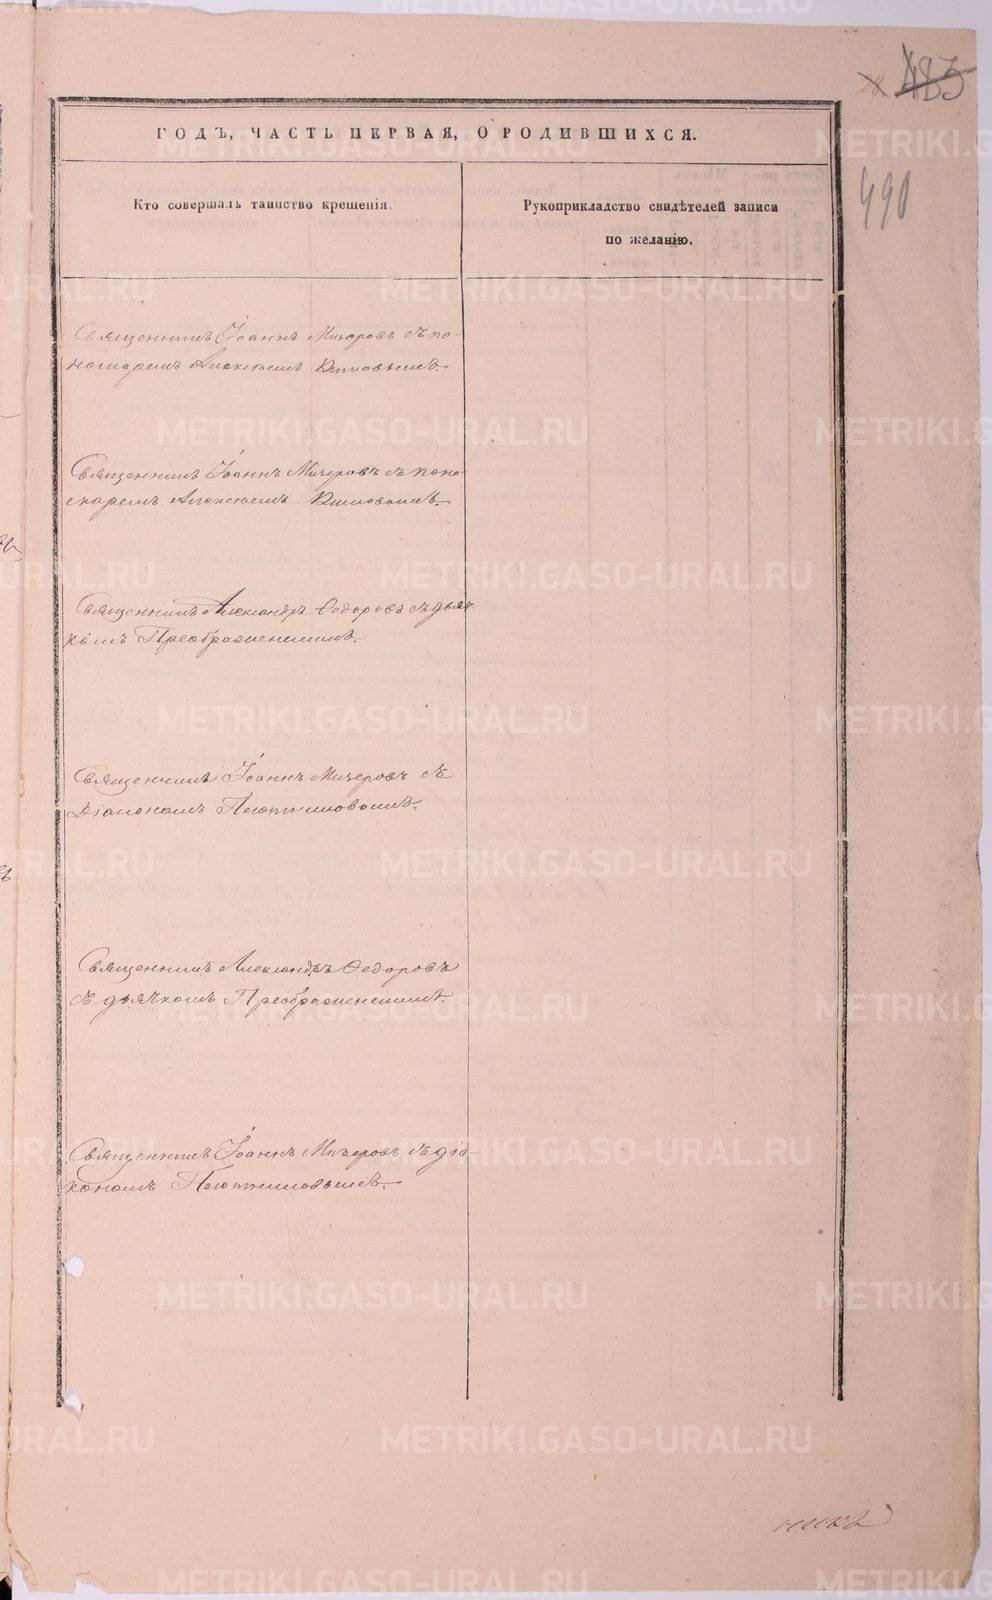 483
490
ГОДЪ, ЧАСТЬ ПЕРВАЯ, О РОДИВШИХСЯ.
Кто совершалъ таинство крещенія.
Рукоприкладство свидѣтелей записи
по желанію.
Священникъ Іоаннъ Мичеровъ съ по-
номаремъ Алексѣемъ
Священникъ Іоаннъ Мичеровъ съ поно-
маремъ Алексѣемъ
Священникъ Александръ Ѳедоровъ съ дьяч-
комъ Преображенскимъ.
Священникъ Іоаннъ Мичеровъ съ
Діакономъ Плотниковымъ.
Священникъ Александръ Ѳедоровъ
съ дьячкомъ Преображенскимъ.
Священникъ Іоаннъ Мичеровъ съ діа-
кономъ Плотниковымъ.
METRIKI.GASO-URAL.RU